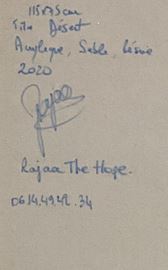 115x75cm
Titre Désert
Acrylique, Sable, Résine
2020
Rajaa
Rajaa The Hope.
06 14.49.42.34